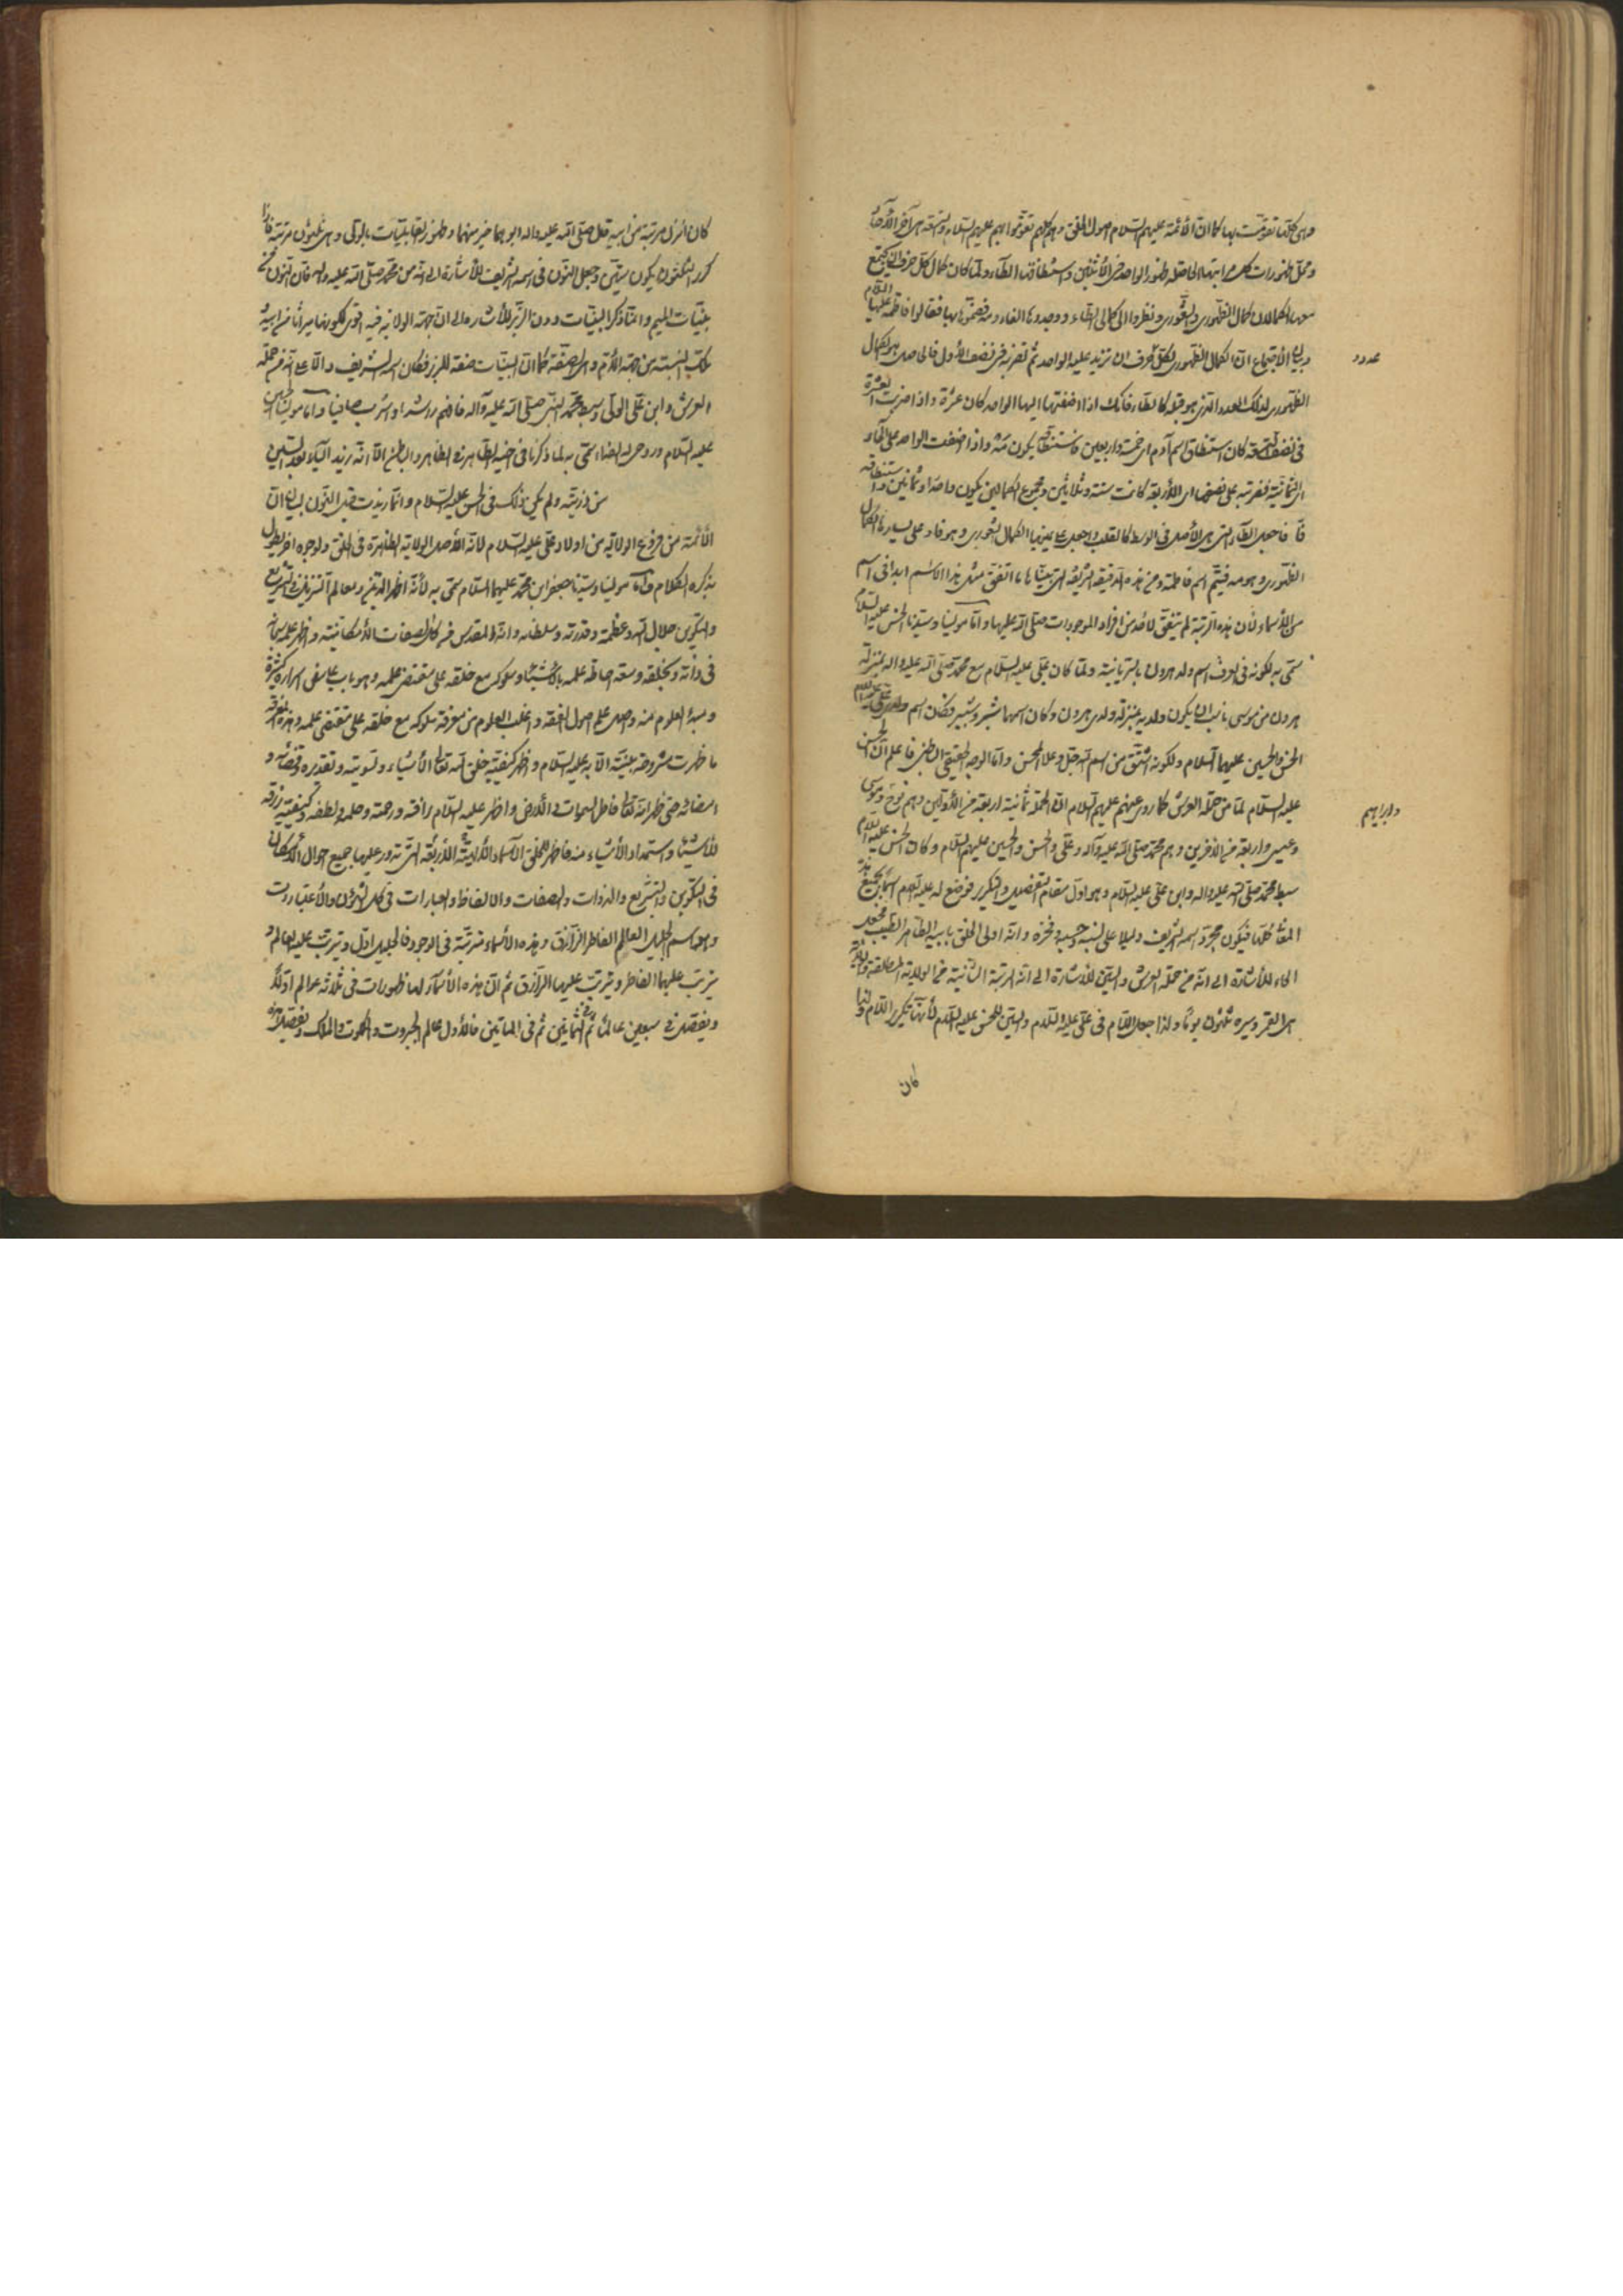 وهي كلها تقومت بها كما ان الأئمة عليهم السلام اصول الخلق وهم كلهم تقوموا بهم عليهم السلام والتسعة هي آخر الآحاد
ومحل ظهورات كل مراتبها الحاصلة ظهور الواحد في الاثنين واستنطاقها الطاء ولما كان كمال كل حرف ان يجتمع
معها الكمالان الكمال الظهوري والشعوري ونظروا الى كمالي الطاء ووجدوها الفاء ومه فضموها بها فقالوا فاطمة عليها السلام
وبيان الاجتماع ان الكمال الظهوري لكل حرف ان تزيد عليه الواحد ثم تضربه في نصف الأول فالحاصل هو الكمال
عدد
الظهوري لذلك العدد الذي هو قبله كالطاء فانك اذا اضفتها اليها الواحد كان عشرة واذا ضربت العشرة
في نصف التسعة كان استنطاق اسم آدم اي خمسة واربعين فاستنطاقه يكون مه واذا اضفت الواحد على الحاء
اي الثمانية فضربته على نصفها اي الاربعة كانت ستة وثلاثين ومجموع الكمالين يكون واحدا وثمانين واستنطاقه
فا فاجعل الطاء التي هي الأصل في الوسط كالقلب واجعل على يمينها الكمال الشعوري وهو فا وعلى يسارها الكمال
الظهوري وهو مه فيتم اسم فاطمة ومن هذه الدقيقة الشريفة التي بيناها ما اتفق مثل هذا الاسم ابدا في اسم
من الأسماء لأن هذه الرتبة لم يتفق لأحد من افراد الموجودات صلى الله عليها واما مولينا وسيدنا الحسن عليه السلام
سمي به لكونه في العرف اسم ولد هرون بالسريانية ولما كان علي عليه السلام مع محمد صلى الله عليه واله بمنزلة
هرون من موسى ناسب ان يكون ولديه بمنزلة ولدي هرون وكان اسمهما شبر وشبير فكان اسم ولدي علي عليه السلام
الحسن والحسين عليهما السلام ولكونه اشتق من اسم الله جل وعلا المحسن واما الوجه الحقيقي الباطني فاعلم ان الحسن
عليه السلام لما من حملة العرش كما روي عنهم عليهم السلام ان الحملة ثمانية اربعة من الأولين وهم نوح وموسى
وابراهيم
وعيسى واربعة من الآخرين وهم محمد صلى الله عليه وآله وعلي والحسن والحسين عليهم السلام وكان الحسن عليه السلام
سبط محمد صلى الله عليه واله وابن علي عليه السلام وهو اول مقام التفصيل والتكرر فوضع له عليه السلام اسما يجمع هذه
المقامات كلها فيكون مجرد اسمه الشريف دليلا على نسبه وحسبه وفخره وانه اولى الخلق بابيه الطاهر الطيب فجعل
الحاء للاشارة الى انه من حملة العرش والسين للاشارة الى انه المرتبة الثانية من الولاية المطلقة والولاية
هي القمر وسيره ثلثون يوما ولذا جعل اللام في علي عليه السلام والسين للحسن عليه السلام لأنها تكرير اللام ولذا
كان
كان انزل مرتبة من ابيه قال صلى الله عليه واله ابوهما خير منهما وظهور القابليات بالولي وهي ثلثون مرتبة فاذا
كرر الثلثون يكون ستين وجعل النون في اسمه الشريف للأشارة الى انه من محمد صلى الله عليه واله فان النون من
بينات الميم وانما ذكر البينات دون الزبر للأشارة الى ان جهة الولاية فيه اقوى لكونها ميراثا من ابيه
تلك النسبة من جهة الأم وهي الصفة كما ان البينات صفة للزبر فكان اسمه الشريف دالا على انه من حملة
العرش وابن علي الولي وسبط محمد النبي صلى الله عليه وآله فافهم راشدا واشرب صافيا واما مولينا الحسين
عليه السلام وروحي له الفداء سمي به لما ذكرنا في اخيه الظاهر في الظاهر والباطن الا انه زيد الياء بعد السين
من ذريته ولم يكن ذلك في الحسن عليه السلام وانما زيدت قبل النون لبيان ان
الأئمة من فروع الولاية من اولاد علي عليه السلام لانه الأصل الولاية الظاهرة في الخلق ولوجوه اخر يطول
بذكره الكلام واما مولينا وسيدنا جعفر ابن محمد عليهما السلام سمي به لأنه اظهر الدين ومعالم التنزيل في التشريع
والتكوين جلال الله وعظمته وقدرته وسلطانه وانه المقدس من كل الصفات الأمكانية واظهر علمه سبحانه
في ذاته وبخلقه وسعة احاطة علمه بالأشياء وسلوكه مع خلقه على مقتضى علمه وهو باب عاسفى اسراره كثيرة
ومبدء العلوم منه وصل علم اصول الفقه واغلب العلوم من معرفة سلوكه مع خلقه على مقتضى علمه وهذه المعرفة
ما ظهرت مشروحة مبينة الا به عليه السلام واظهر كيفية خلق الله تعالى الأشياء وتسويته وتقديره وقضائه و
امضائه حتى ظهر انه تعالى فاطر السموات والأرض واظهر عليه السلام رافته ورحمته وحلمه ولطفه وكيفية رزقه
للأشياء واستمداد الأشياء منه فاظهر للخلق الأسماء الألهية الأربعة التي تدور عليها جميع احوال الأمكان
في التكوين والتشريع والذوات والصفات والالفاظ والعبارات في كل الشؤن والأعتبارات
وهو اسم الجليل العالم الفاطر الرازق وهذه الأسماء مترتبة في الوجود فالجليل اول ويترتب عليه العالم و
يترتب عليهما الفاطر ويترتب عليهما الرازق ثم ان هذه الأسماء لها ظهورات في ثلاثة عوالم اولا
ويفصل في سبعين عالما ثم في الثمانين ثم في الماتين فالأول عالم الجبروت والملكوت والملك وتفصيل هذه